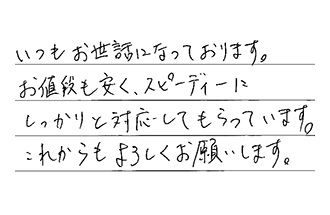 いつもお世話になっております。
お値段も安く、スピーディーに
しっかりと対応してもらっています。
これからもよろしくお願いします。